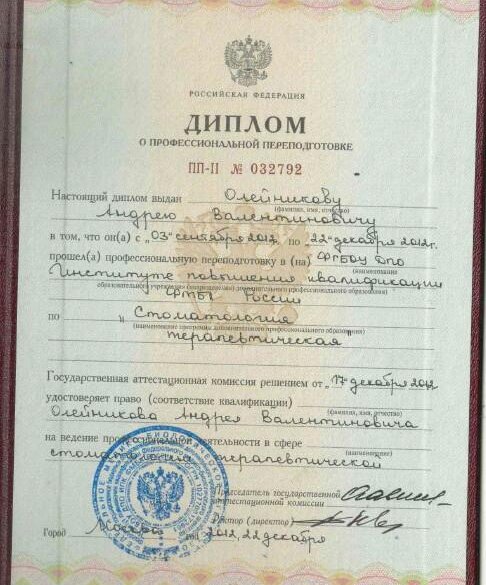 РОССИЙСКАЯ ФЕДЕРАЦИЯ
ДИПЛОМ
О ПРОФЕССИОНАЛЬНОЙ ПЕРЕПОДГОТОВКЕ
ПП-II № 032792
Настоящий диплом выдан Олейникову
(фамилия, имя, отчество)
Андрею Валентиновичу
в том, что он(а) с „03" сентября 2012 по „22" декабря 2012г.
прошел(а) профессиональную переподготовку в (на) ФГБОУ ДПО
(наименование
Институте повышения квалификации
образовательного учреждения (подразделения) дополнительного профессионального образования)
ФМБА России
по „Стоматология
(наименование программы дополнительного профессионального образования)
терапевтическая"
Государственная аттестационная комиссия решением от „17" декабря 2012
удостоверяет право (соответствие квалификации)
(фамилия, имя, отчество)
Олейникова Андрея Валентиновича
на ведение профессиональной деятельности в сфере
(наименование)
стоматологии терапевтической
Председатель государственной
аттестационной комиссии
Ректор (директор)
Город Москва год 2012, 22 декабря